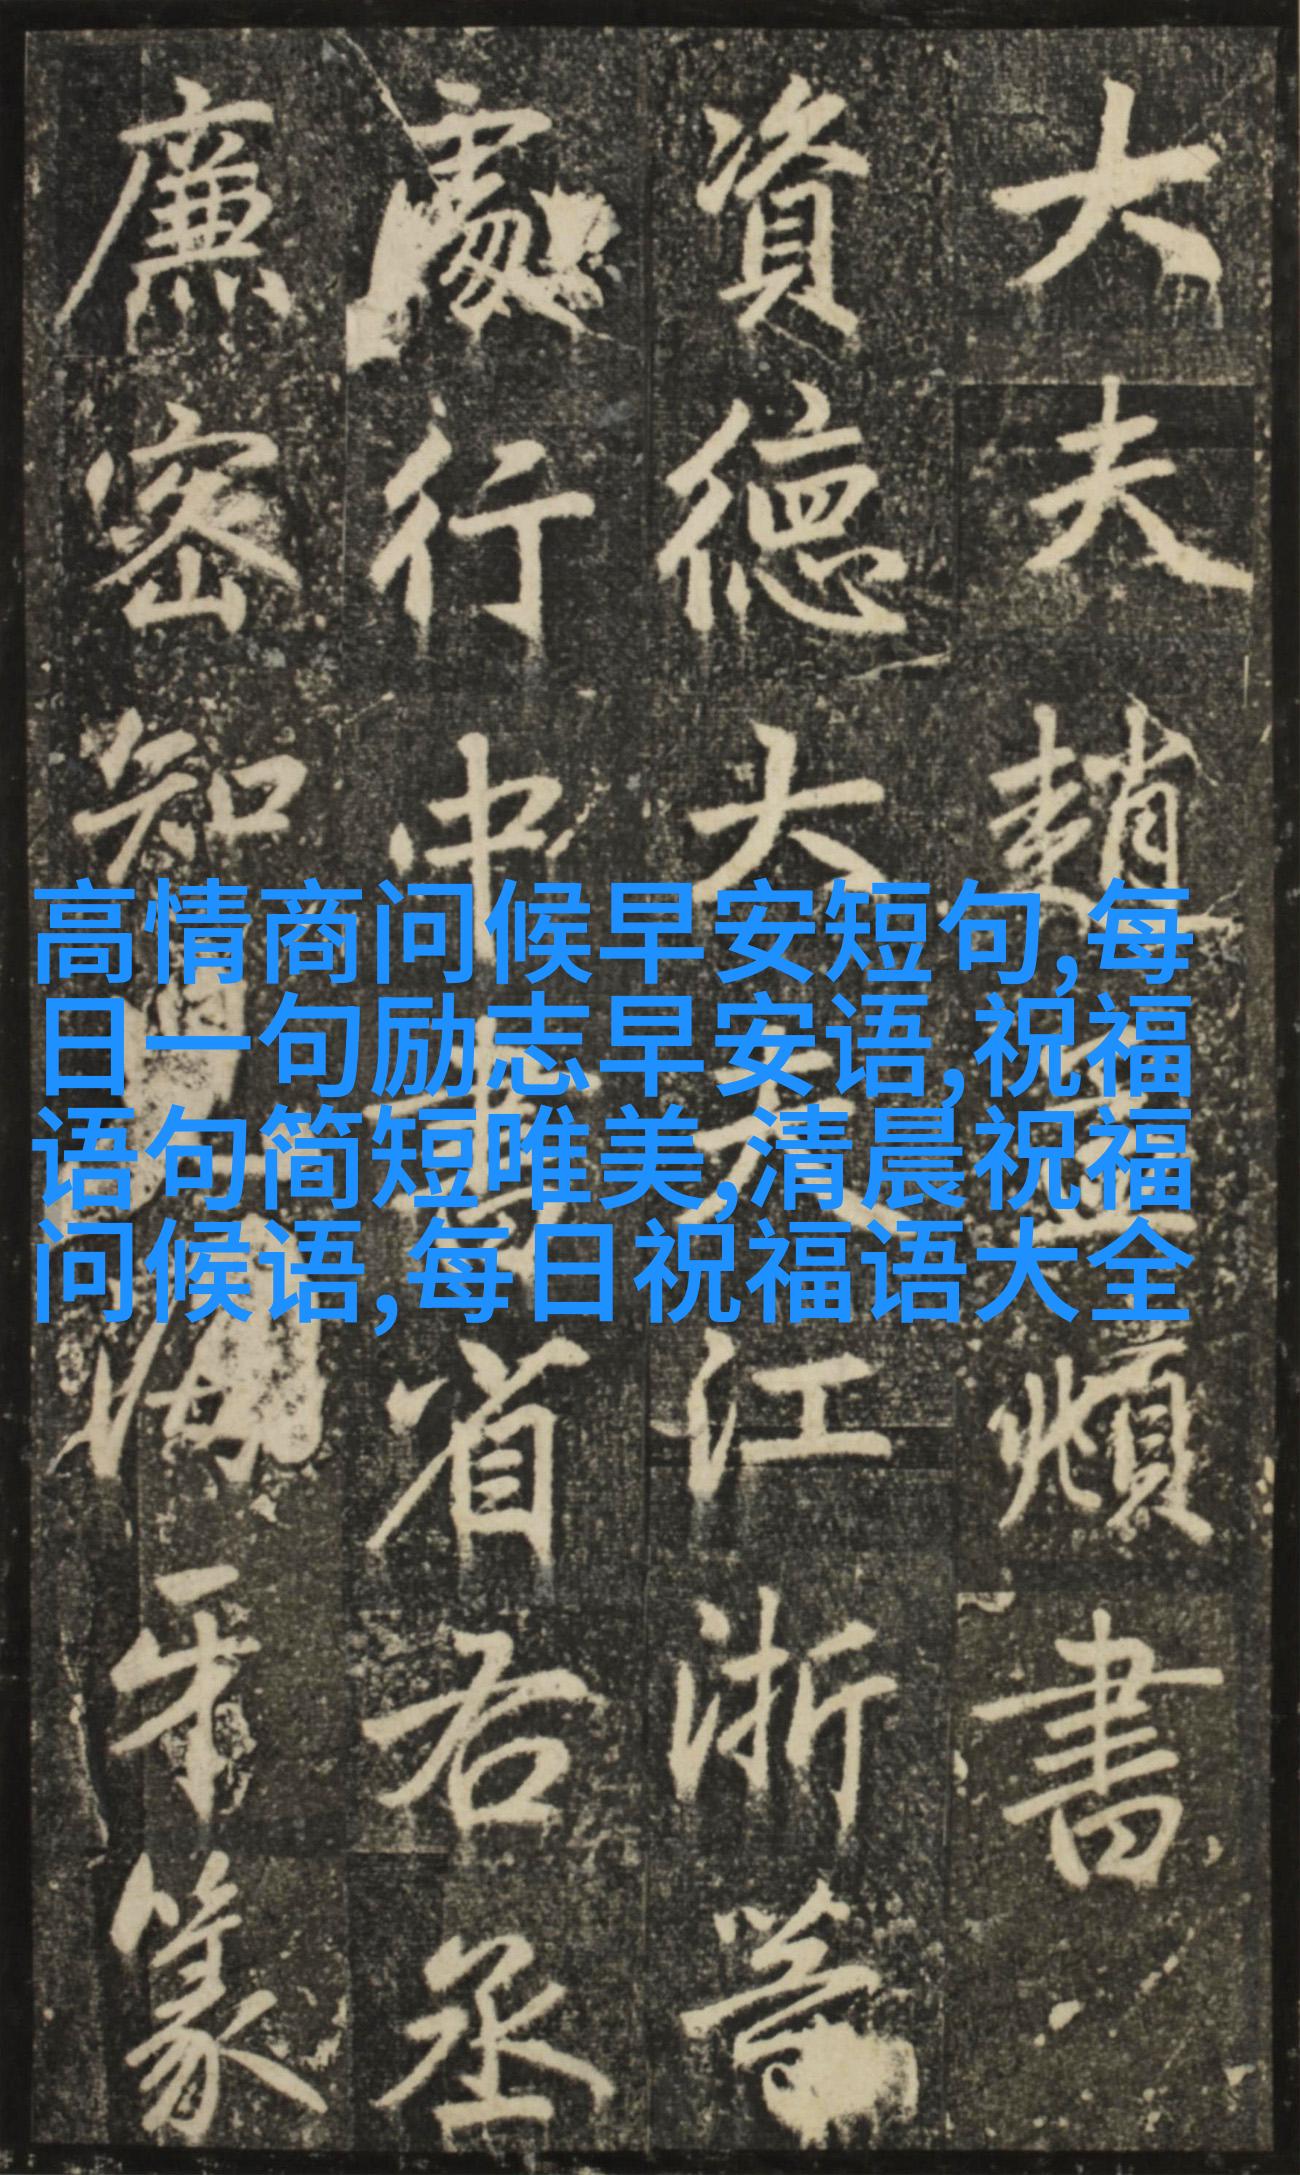 大夫趙孟頫書
資德大夫江浙等
處行中書省右丞
廉密知海牙篆
高情商问候早安短句,每
日一句励志早安语,祝福
语句简短唯美,清晨祝福
问候语,每日祝福语大全